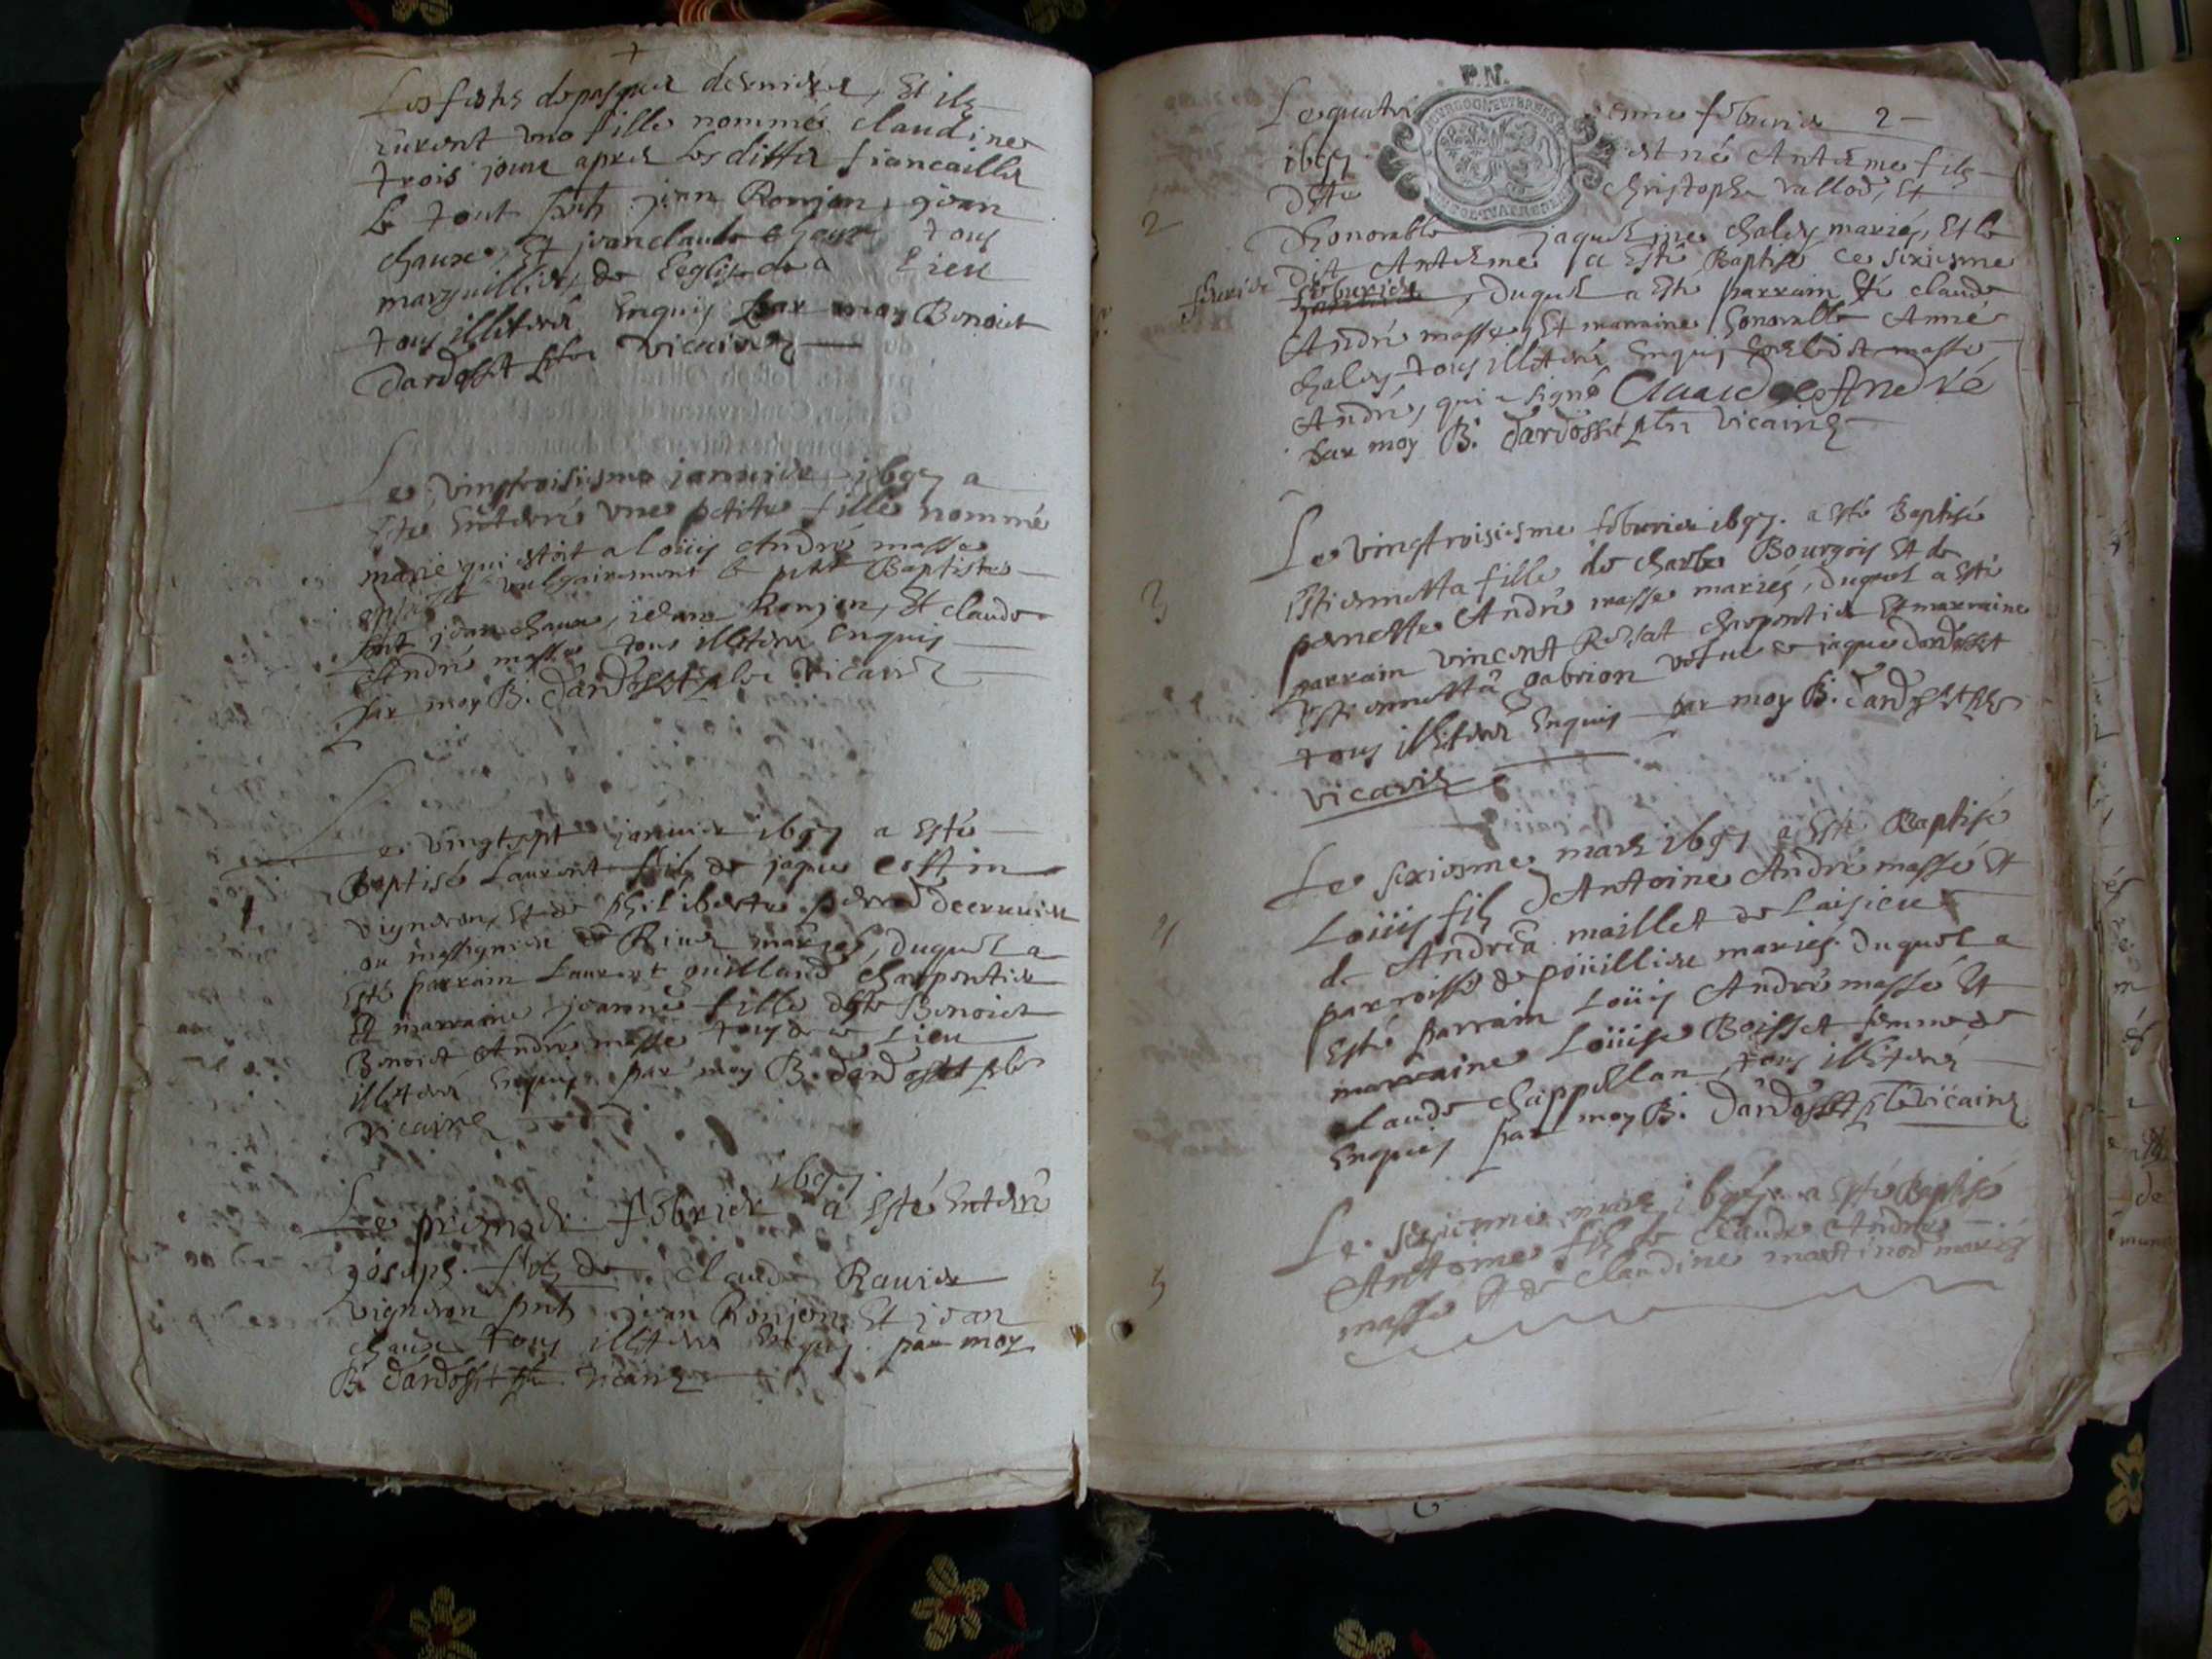 Les festes de pasques dernieres, Et ils
eurent une fille nommé claudine
trois jours apres les dittes fiancailles
le tout pnts jean Ronjon, jean
chaux, Et jean claude chaux tous
marguilliers de l'eglise de ce lieu
tous illiterés Enquis par moy Benoict
Dardosset pbre vicaire
Le vingtroisiesme januier 1697 a
Esté Enterré une petite fille nommé
marie qui estoit a Loüis André masse
vulgairement le petit Baptiste
pnt jean chaux, jean Ronjon, Et claude
André masse tous illiterés Enquis
par moy B. Dardosset pbre vicaire
Le vingtsept januier 1697 a Esté
Baptisé Laurent fils de jaque Costin
vigneron, Et de philiberte
ou massignieu de Rives mariés, Duquel a
Esté parrain Laurent guilland charpentier
Et marraine joanne fille de Benoict
Benoict André masse tous de ce Lieu
illiterés Enquis par moy B. Dardosset pbre
vicaire
1
1697
Le premier febrier a Esté Enterré
joseph fils de claude Rauier
vigneron pnts jean Ronjon Et jean
chaux tous illiterés Enquis par moy
B. Dardosset pbre vicaire
P.N.
Le quatriesme feburier 2
1697 est né Antesme fils
christophe vallod, Et
2
D'honorable jaquesme chaley mariés, Et le
Dit Antesme a Esté Baptisé ce sixiesme
feburier Duquel a Esté parrain claude
André masse, Et marraine honorable Anne
chaley tous illiterés Enquis masse
André, qui a signé Claude André
par moy B. Dardosset pbre vicaire
Le vingtroisiesme feburier 1697. a Esté Baptisé
3
Estiennetta fille de charles Bourgois Et de
pernette André masse mariés, Duquel a Esté
parrain vincent charpentier Et marraine
Estiennetta gabrion vefue de jaque Dardosset
tous illiterés Enquis par moy B. Dardosset pbre
vicaire
Le sixiesme mars 1697 a Esté Baptisé
4
Loüis fils D'Antoine André masse Et
de Andréa maillet de Laisieu
parroisse de poüillieu mariés. Duquel a
Esté parrain Loüis André masse Et
marraine Loüise Boisset femme de
claude chappellan, tous illiterés
Enquis par moy B. Dardosset pbre vicaire
Le sixiesme mars 1697 a Esté Baptisé
Antoine fils de claude André
5
masse Et de claudine martinod mariés